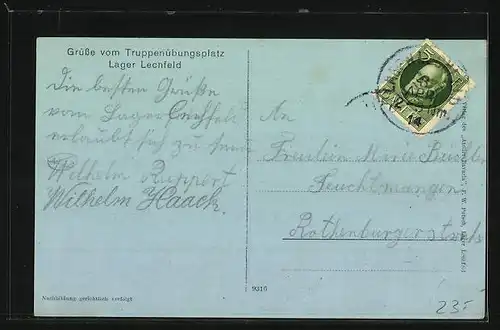 Grüße vom Truppenübungsplatz
Lager Lechfeld
Die besten Grüße
vom Lager Lechfeld
erlaubt sich zu
Wilhelm Ruppert
Wilhelm Haack.
An
Fräulein Marie
Feuchtwangen
Rothenburgerstraße
9316
Nachbildung gerichtlich verfolgt
23.-